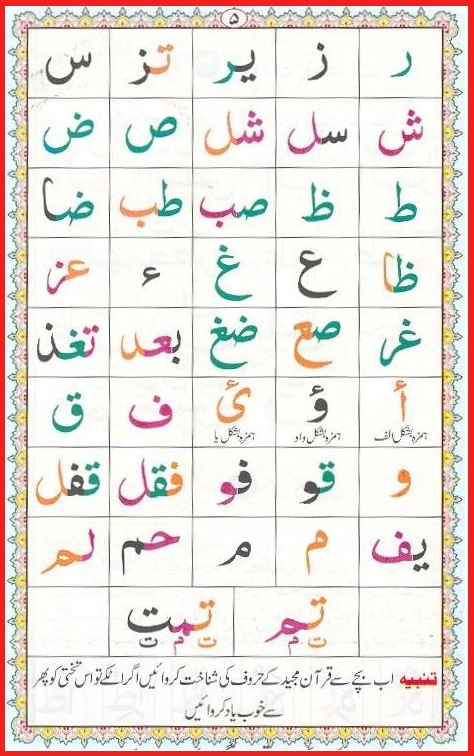 ۵
ر ز یر تز س
ش سل شل ص ض
ط ظ صب طب ضا
ظا ع غ ء عز
غر صع ضغ بعد تغذ
أ ؤ ئ ف ق
ہمزہ بشکل الف ہمزہ بشکل واو ہمزہ بشکل یا
و قو فو فقل قفل
یف م م حم لم
تم تمت
ت م ت م ت
تنبیہ اب بچے سے قرآن مجید کے حروف کی شناخت کروائیں اگر اٹکے تو اس تختی کو پھر
سے خوب یاد کروائیں